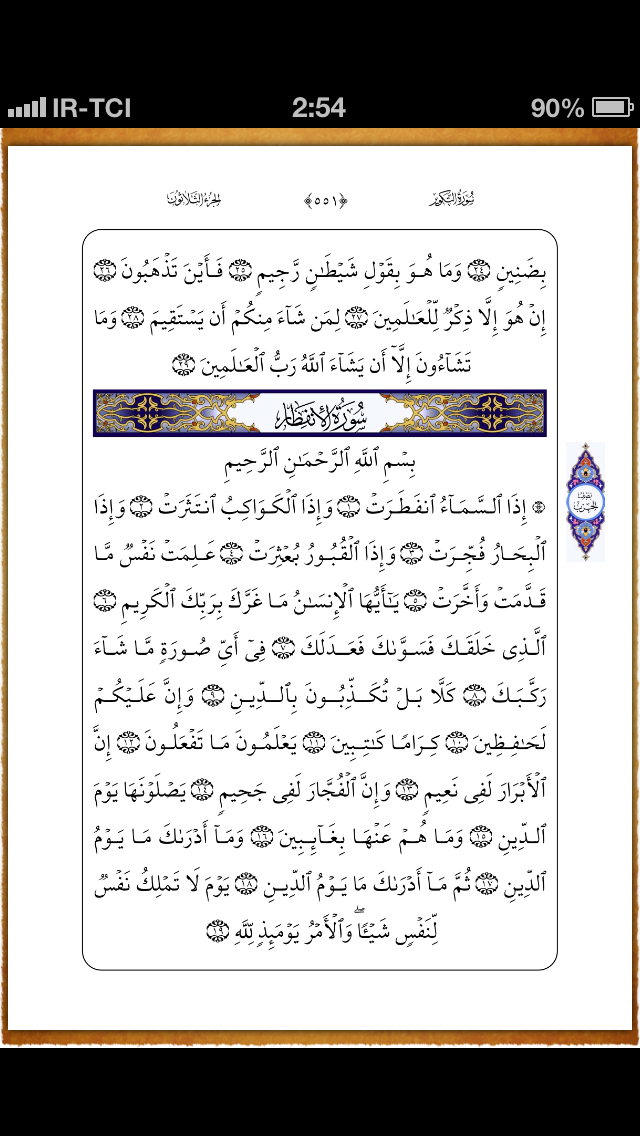 IR-TCI 2:54 90%
سُورَةُ التَّكْوِير ﴿٥٥١﴾ الجُزءُ الثَّلَاثُون
بِضَنِينٍ ٢٤ وَمَا هُوَ بِقَوْلِ شَيْطَٰنٍ رَّجِيمٍ ٢٥ فَأَيْنَ تَذْهَبُونَ ٢٦
إِنْ هُوَ إِلَّا ذِكْرٌ لِّلْعَٰلَمِينَ ٢٧ لِمَن شَآءَ مِنكُمْ أَن يَسْتَقِيمَ ٢٨ وَمَا
تَشَآءُونَ إِلَّآ أَن يَشَآءَ ٱللَّهُ رَبُّ ٱلْعَٰلَمِينَ ٢٩
سُورَةُ الانفِطَار
بِسْمِ ٱللَّهِ ٱلرَّحْمَٰنِ ٱلرَّحِيمِ
۞ إِذَا ٱلسَّمَآءُ ٱنفَطَرَتْ ١ وَإِذَا ٱلْكَوَاكِبُ ٱنتَثَرَتْ ٢ وَإِذَا
نِصْفُ الحِزْبِ
ٱلْبِحَارُ فُجِّرَتْ ٣ وَإِذَا ٱلْقُبُورُ بُعْثِرَتْ ٤ عَلِمَتْ نَفْسٌ مَّا
قَدَّمَتْ وَأَخَّرَتْ ٥ يَٰٓأَيُّهَا ٱلْإِنسَٰنُ مَا غَرَّكَ بِرَبِّكَ ٱلْكَرِيمِ ٦
ٱلَّذِى خَلَقَكَ فَسَوَّىٰكَ فَعَدَلَكَ ٧ فِىٓ أَىِّ صُورَةٍ مَّا شَآءَ
رَكَّبَكَ ٨ كَلَّا بَلْ تُكَذِّبُونَ بِٱلدِّينِ ٩ وَإِنَّ عَلَيْكُمْ
لَحَٰفِظِينَ ١٠ كِرَامًا كَٰتِبِينَ ١١ يَعْلَمُونَ مَا تَفْعَلُونَ ١٢ إِنَّ
ٱلْأَبْرَارَ لَفِى نَعِيمٍ ١٣ وَإِنَّ ٱلْفُجَّارَ لَفِى جَحِيمٍ ١٤ يَصْلَوْنَهَا يَوْمَ
ٱلدِّينِ ١٥ وَمَا هُمْ عَنْهَا بِغَآئِبِينَ ١٦ وَمَآ أَدْرَىٰكَ مَا يَوْمُ
ٱلدِّينِ ١٧ ثُمَّ مَآ أَدْرَىٰكَ مَا يَوْمُ ٱلدِّينِ ١٨ يَوْمَ لَا تَمْلِكُ نَفْسٌ
لِّنَفْسٍ شَيْـًٔا ۖ وَٱلْأَمْرُ يَوْمَئِذٍ لِّلَّهِ ١٩